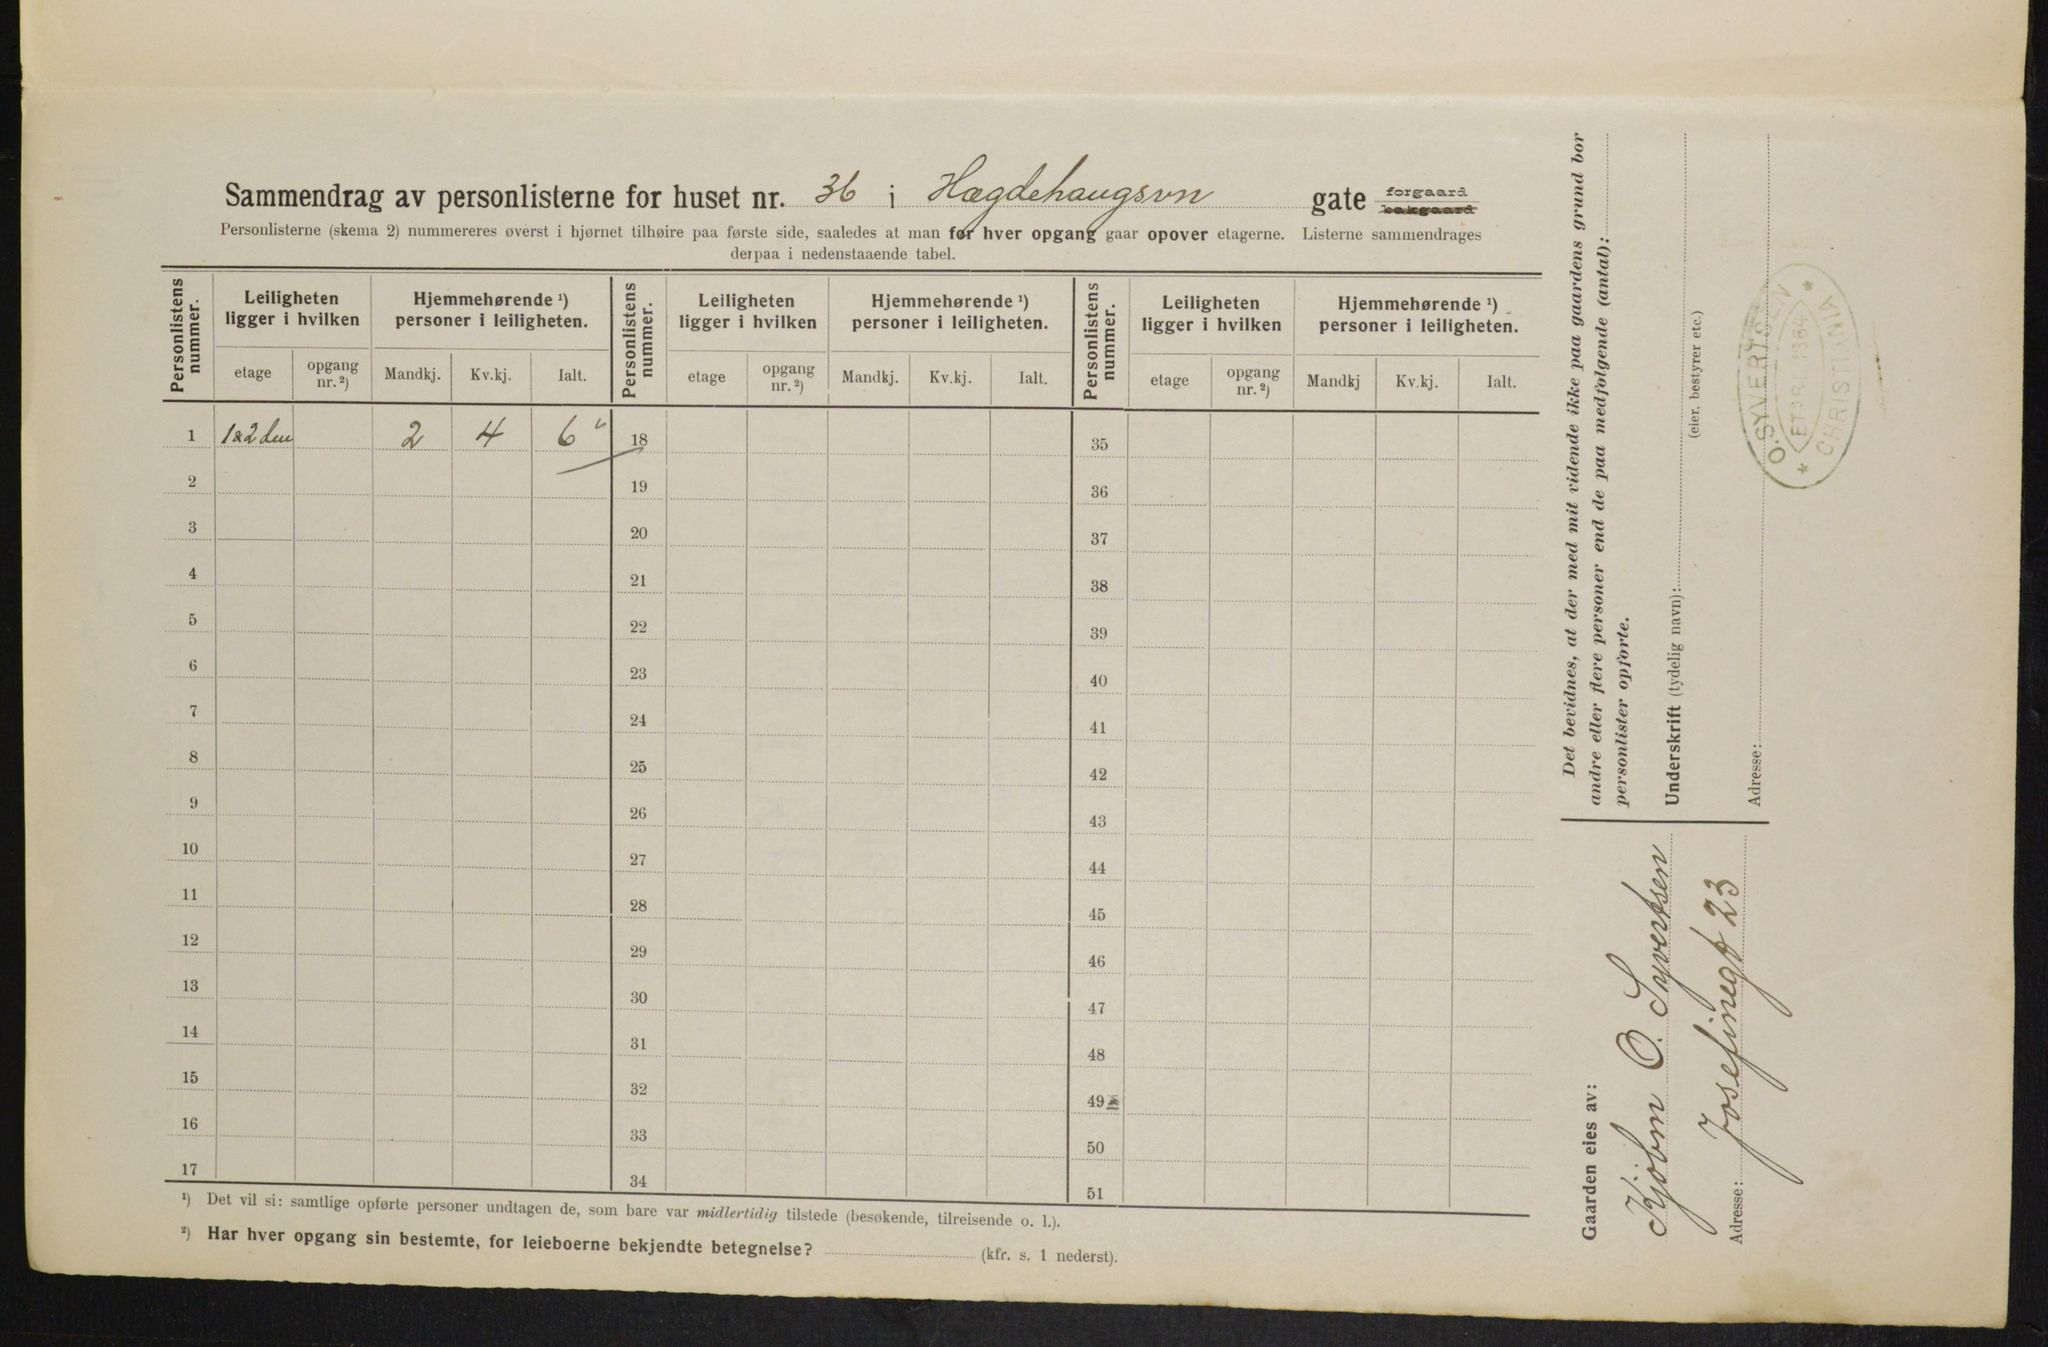 Sammendrag av personlisterne for huset nr. 36 i Hægdehaugsvn gate forgaard
bakgaard
Personlisterne (skema 2) nummereres øverst i hjørnet tilhøire paa første side, saaledes at man for hver opgang gaar opover etagerne. Listerne sammendrages
derpaa i nedenstaaende tabel.
Personlistens nummer. Leiligheten ligger i hvilken Hjemmehørende ¹) personer i leiligheten. Personlistens nummer. Leiligheten ligger i hvilken Hjemmehørende ¹) personer i leiligheten. Personlistens nummer. Leiligheten ligger i hvilken Hjemmehørende ¹) personer i leiligheten.
etage opgang nr. ²) Mandkj. Kv.kj. Ialt. etage opgang nr. ²) Mandkj. Kv.kj. Ialt. etage opgang nr. ²) Mandkj Kv.kj. Ialt.
1 1 & 2 den 2 4 6 18 35
2 19 36
3 20 37
4 21 38
5 22 39
6 23 40
7 24 41
8 25 42
9 26 43
10 27 44
11 28 45
12 29 46
13 30 47
14 31 48
15 32 49
16 33 50
17 34 51
¹) Det vil si: samtlige opførte personer undtagen de, som bare var midlertidig tilstede (besøkende, tilreisende o. l.).
²) Har hver opgang sin bestemte, for leieboerne bekjendte betegnelse? (kfr. s. 1 nederst).
Det bevidnes, at der med mit vidende ikke paa gaardens grund bor
andre eller flere personer end de paa medfølgende (antal):
personlister opførte.
Underskrift (tydelig navn):
(eier, bestyrer etc.)
Adresse:
O. SYVERTSEN
ETABL. 1864
CHRISTIANIA
Gaarden eies av:
Kjøbm O. Syvertsen
Adresse: Josefinegt 23